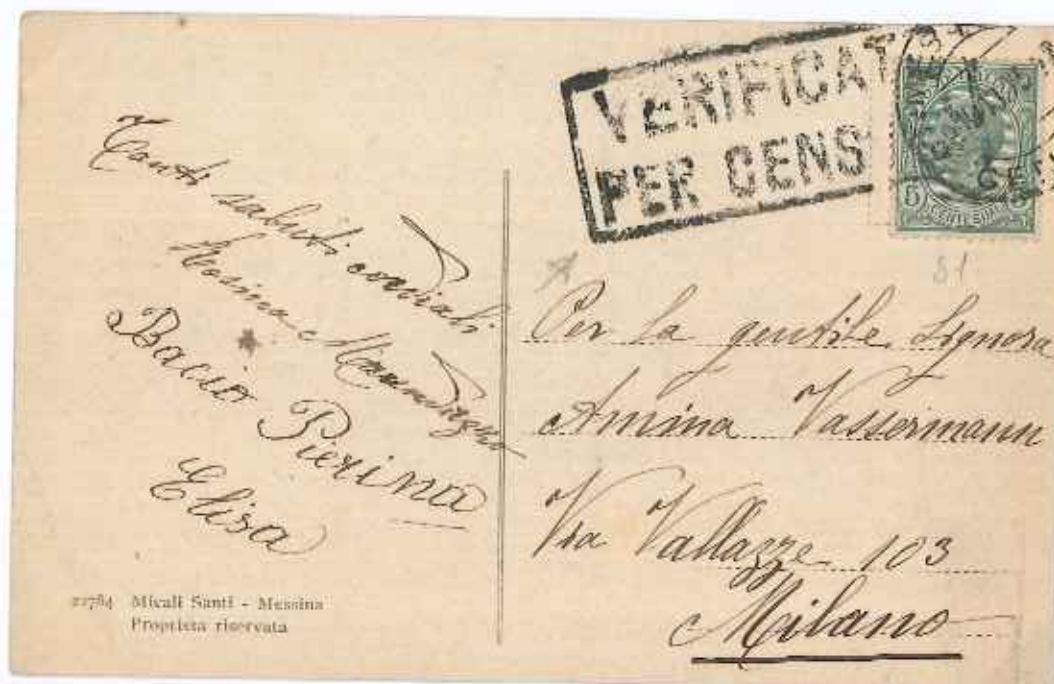 VERIFICAT
PER CENS
5 CENTESIMI 5
81
Tanti saluti cordiali
Rosina
Bacio Pierina
Elisa
Per la gentile Signora
Amina Vassermann
Via Vallazze 103
Milano
22784 Micali Santi - Messina
Proprietà riservata